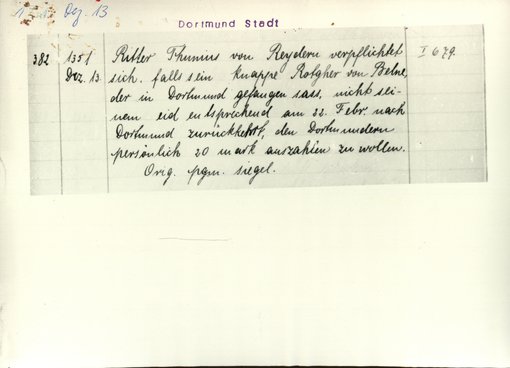 Dez. 13
Dortmund Stadt
382 1351 Ritter Thumus von Reydern verpflichtet I 679.
Dez. 13. sich, falls sein Knappe Rotgher von Belne,
der in Dortmund gefangen sass, nicht sei-
nem eid entsprechend am 22. Febr. nach
Dortmund zurückkehrt, den Dortmundern
persönlich 20 mark auszahlen zu wollen.
Orig. pgm. siegel.